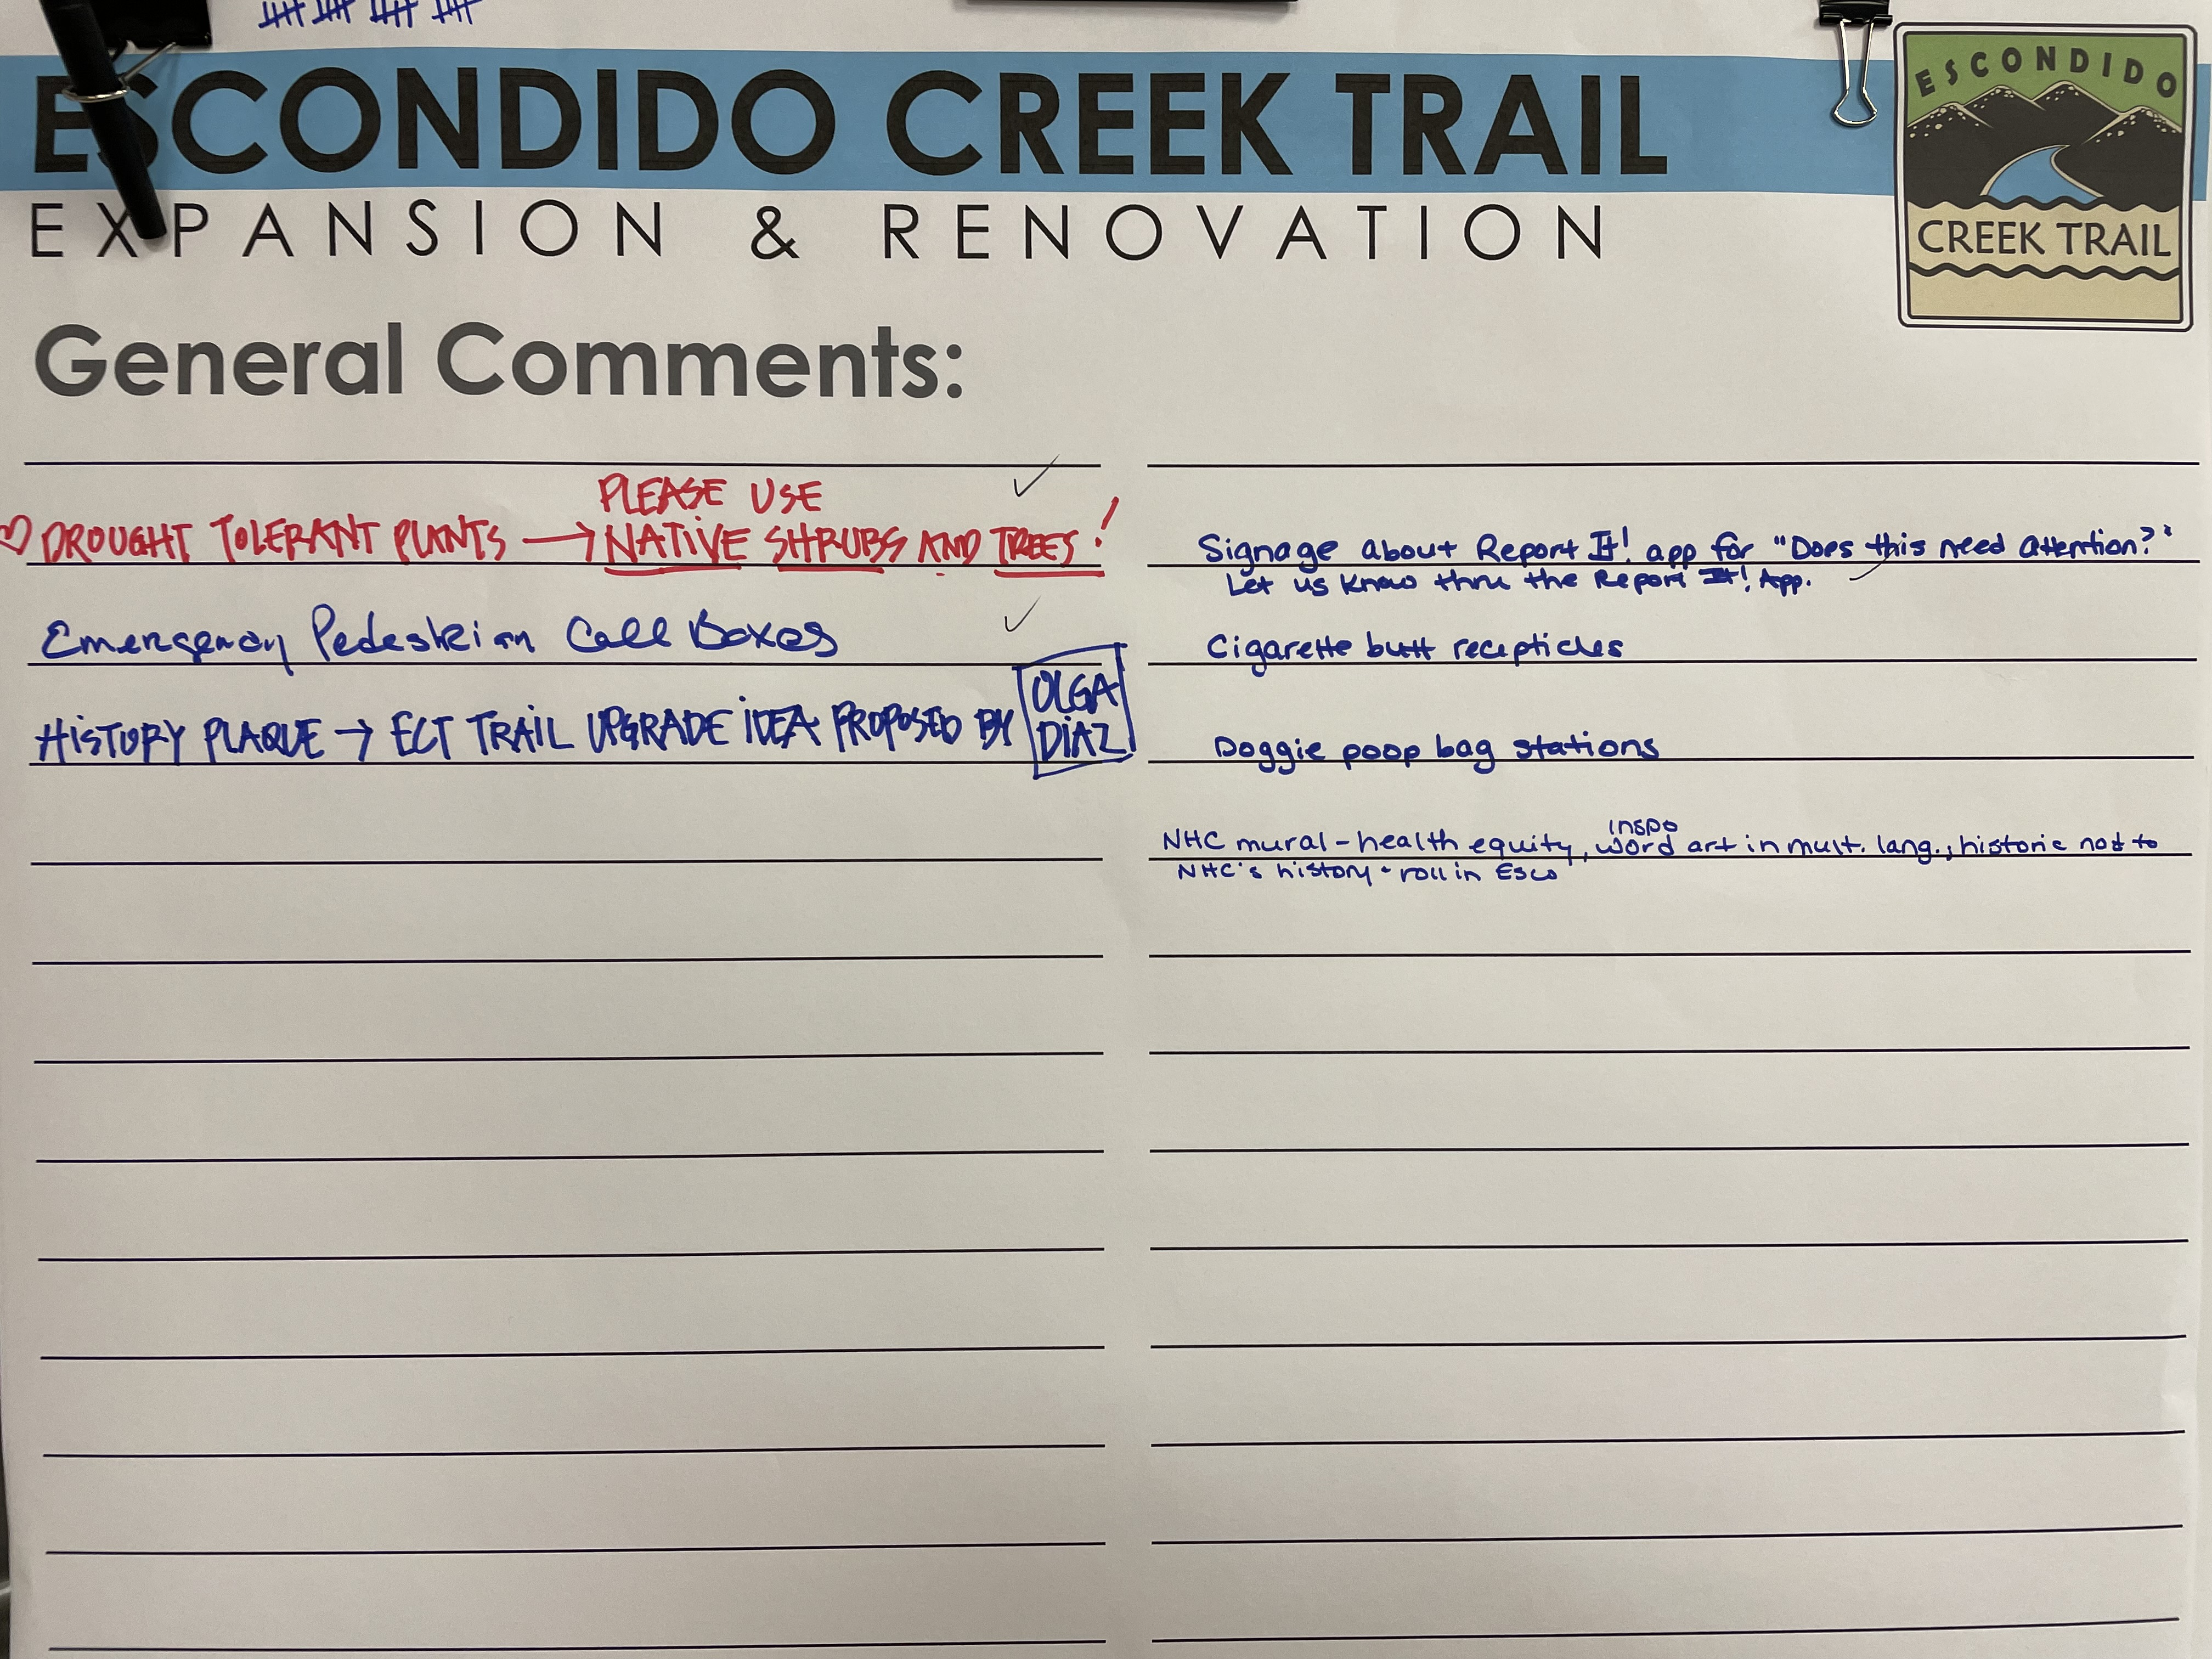 ESCONDIDO CREEK TRAIL
EXPANSION & RENOVATION
ESCONDIDO
CREEK TRAIL
General Comments:
PLEASE USE
♡ DROUGHT TOLERANT PLANTS → NATIVE SHRUBS AND TREES!
Emergency Pedestrian Call Boxes
HISTORY PLAQUE → ECT TRAIL UPGRADE IDEA PROPOSED BY OLGA DIAZ
Signage about Report It! app for "Does this need attention?"
Let us know thru the Report It! App.
Cigarette butt recepticles
Doggie poop bag stations
inspo
NHC mural - health equity, word art in mult. lang., historic nod to
NHC's history + roll in Esco